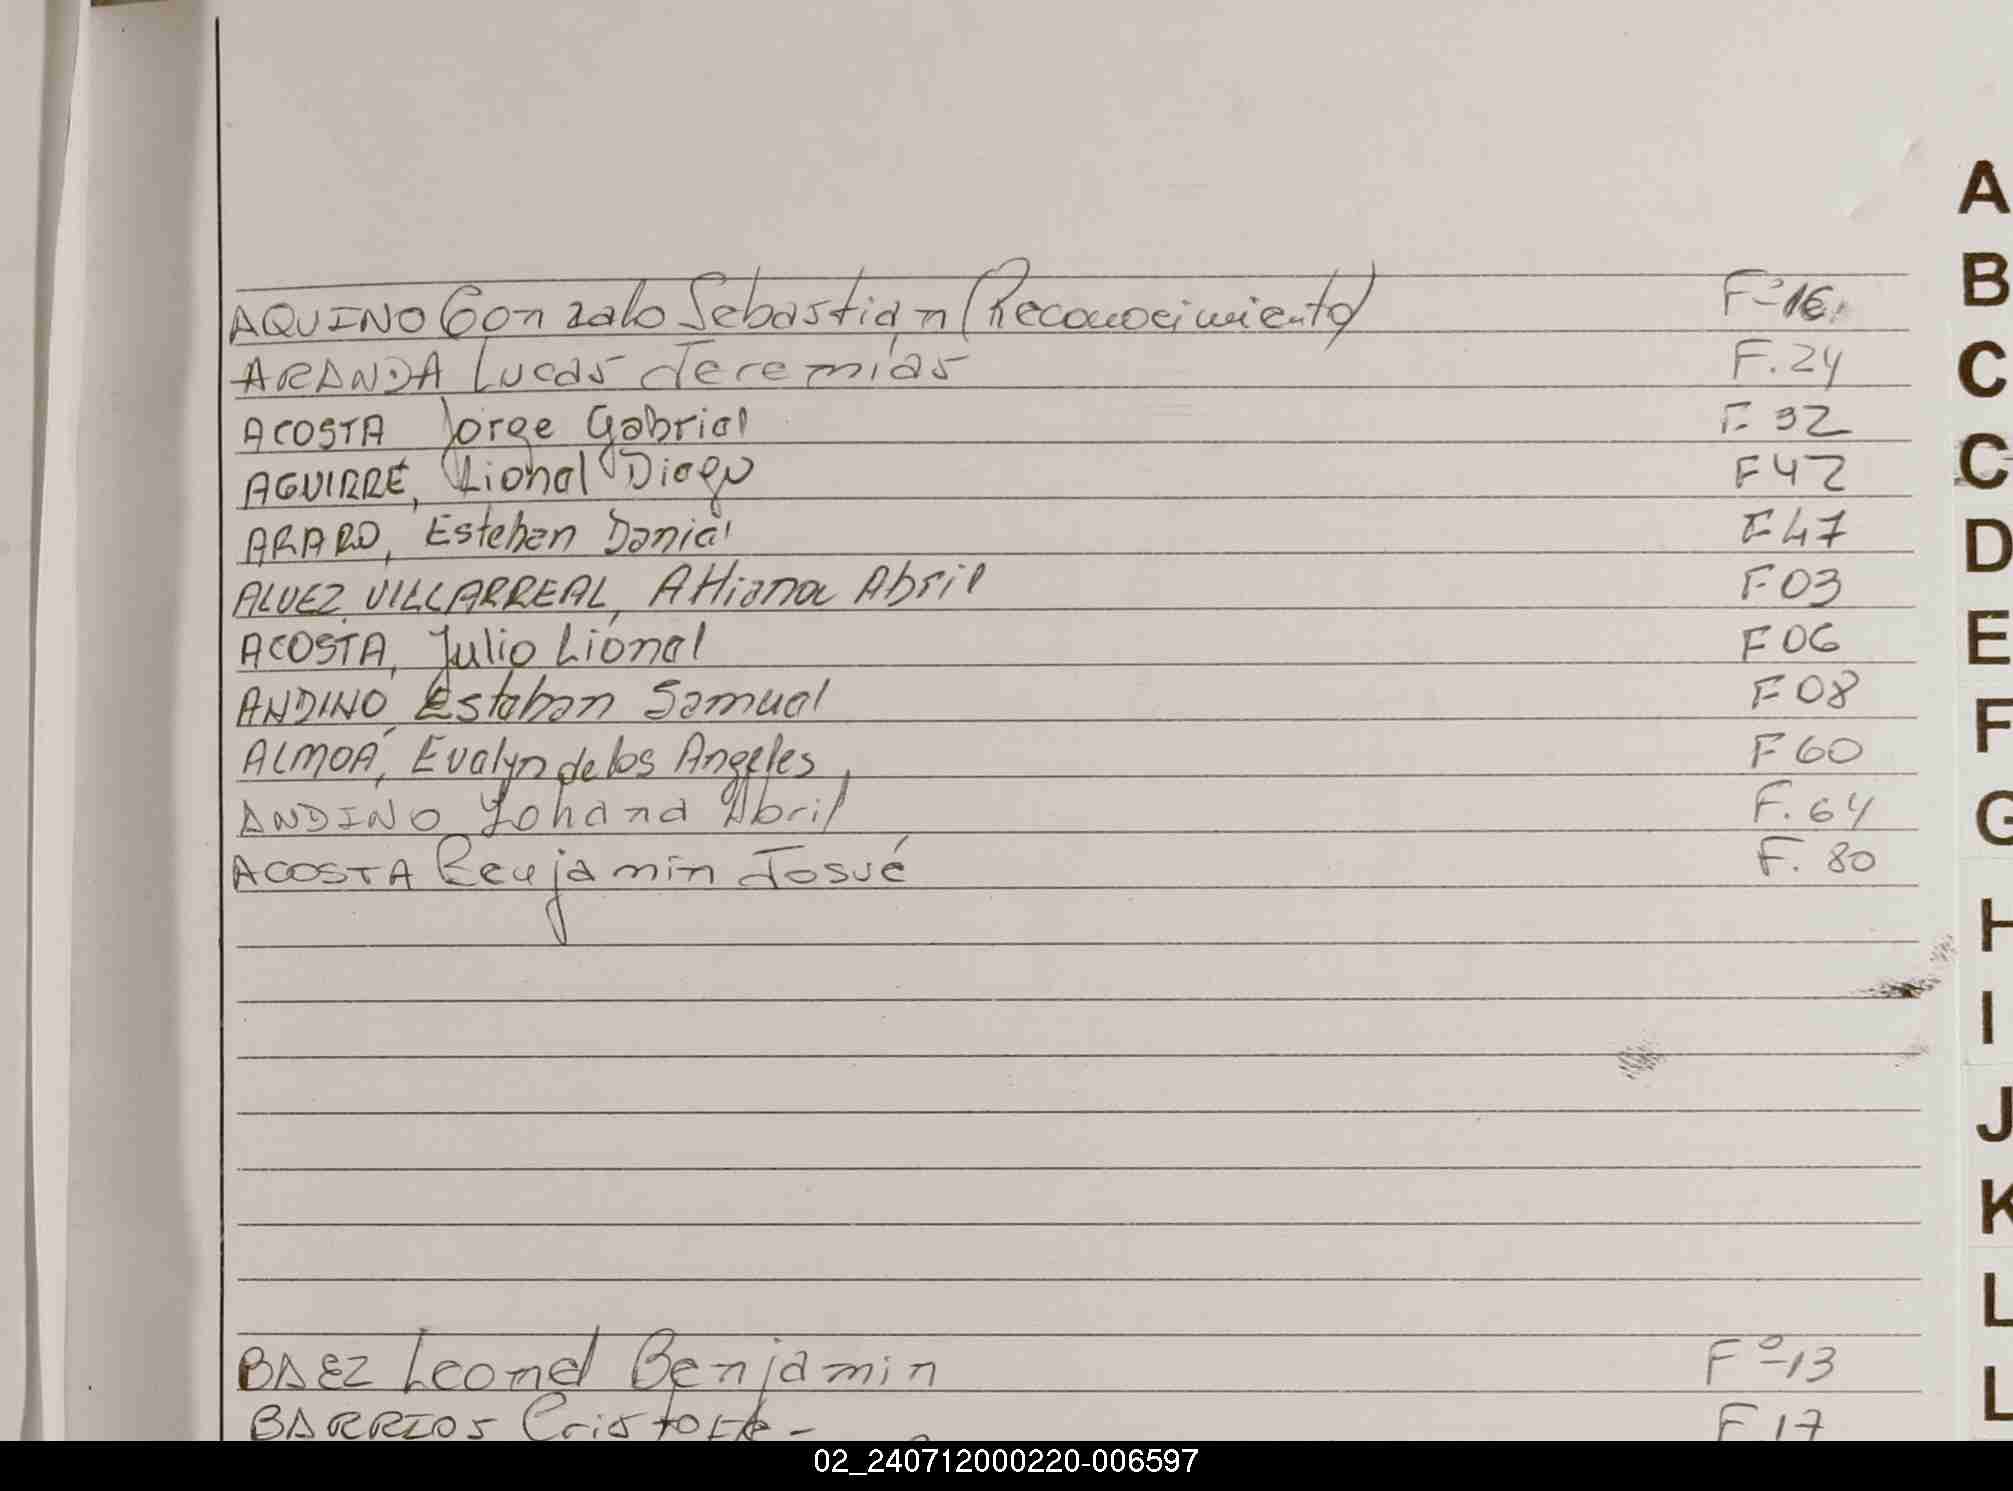 AQUINO Gonzalo Sebastián (Reconocimiento) Fº 16
ARANDA Lucas Jeremías F. 24
ACOSTA Jorge Gabriel F. 32
AGUIRRE, Lionel Diego F 42
ARARO, Esteban Daniel F 47
ALVEZ VILLARREAL, Attiana Abril F 03
ACOSTA, Julio Lionel F 06
ANDINO, Esteban Samuel F 08
ALMOA, Evelyn de los Angeles F 60
ANDINO Yohana Abril F. 64
ACOSTA Benjamin Josué F. 80
BAEZ Leonel Benjamin Fº 13
BARRIOS F 17
A
B
C
C
D
E
F
G
H
I
J
K
L
L
02_240712000220-006597